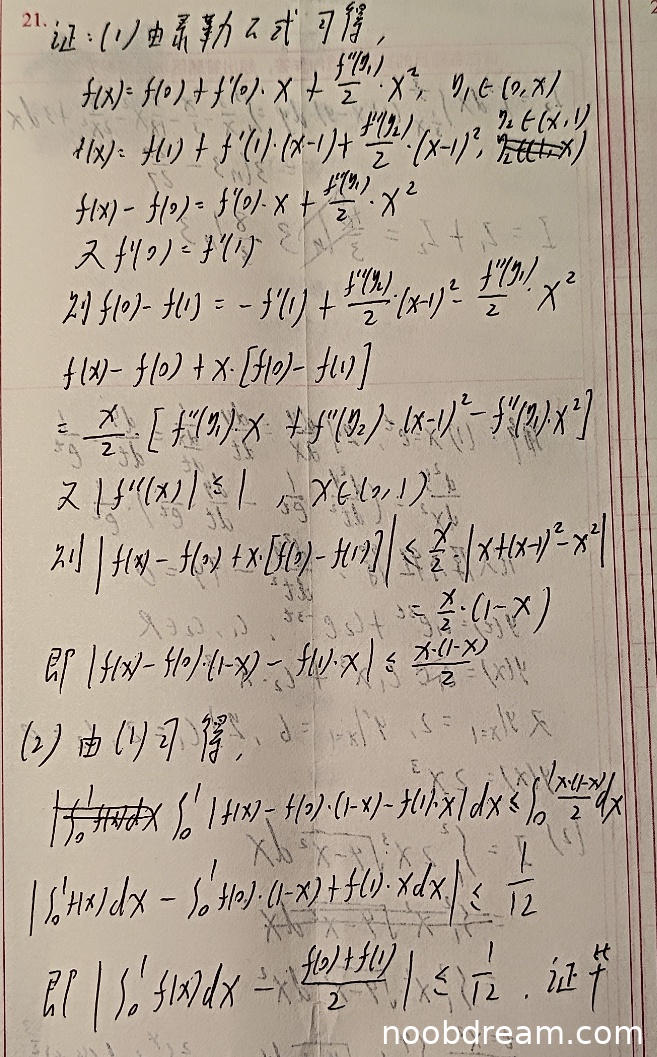 21.
证:(1)由泰勒公式可得,
f(x)=f(0)+f'(0)·x+f''(η₁)/2·x², η₁∈(0,x)
f(x)=f(1)+f'(1)·(x-1)+f''(η₂)/2·(x-1)², η₂∈(x,1)
f(x)-f(0)=f'(0)·x+f''(η₁)/2·x²
又f'(0)=f'(1)
则f(0)-f(1)=-f'(1)+f''(η₂)/2·(x-1)²-f''(η₁)/2·x²
f(x)-f(0)+x·[f(0)-f(1)]
=x/2[f''(η₁)·x+f''(η₂)·(x-1)²-f''(η₁)·x²]
又|f''(x)|≤1,x∈(0,1)
则|f(x)-f(0)+x·[f(0)-f(1)]|≤x/2|x+(x-1)²-x²|
=x/2·(1-x)
即|f(x)-f(0)·(1-x)-f(1)·x|≤x·(1-x)/2
(2)由(1)可得,
∫₀¹|f(x)-f(0)·(1-x)-f(1)·x|dx≤∫₀¹x·(1-x)/2dx
|∫₀¹f(x)dx-∫₀¹f(0)·(1-x)+f(1)·xdx|≤1/12
即|∫₀¹f(x)dx-f(0)+f(1)/2|≤1/12.证毕
noobdream.com